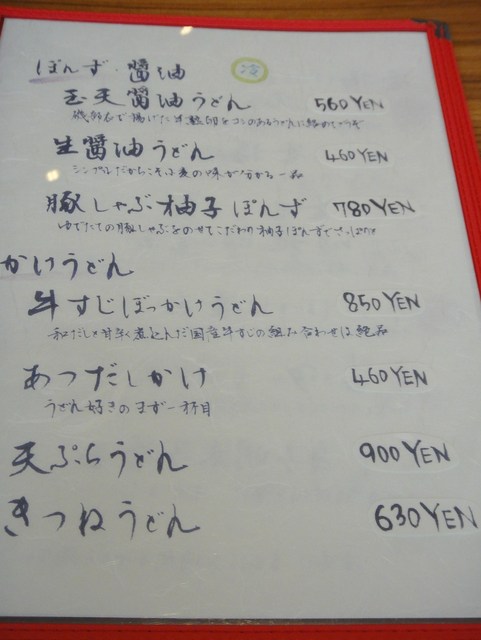 ぽんず・醤油 冷
玉天醤油うどん 560YEN
磯部衣で揚げた半熟卵をコシのあるうどんに絡めて
生醤油うどん 460YEN
シンプルだからこそ小麦の味が分かる一品
豚しゃぶ柚子ぽんず 780YEN
ゆでたての豚しゃぶをのせてこだわり柚子ぽんずでさっぱり
かけうどん
牛すじぼっかけうどん 850YEN
和だしと甘辛く煮込んだ国産牛すじの組み合わせは絶品
あつだしかけ 460YEN
うどん好きのまず一杯目
天ぷらうどん 900YEN
きつねうどん 630YEN